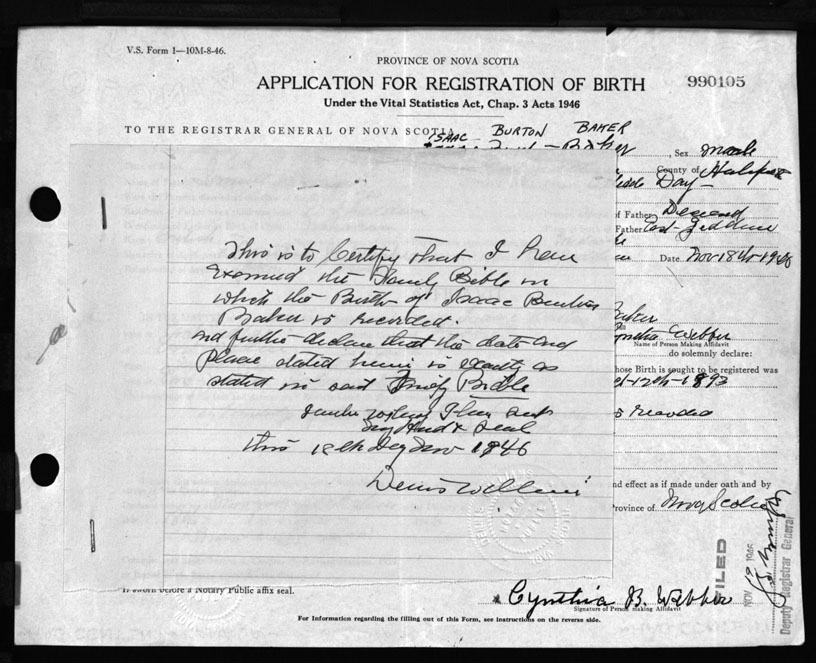 V.S. Form 1—10M-8-46.
PROVINCE OF NOVA SCOTIA
APPLICATION FOR REGISTRATION OF BIRTH
990105
Under the Vital Statistics Act, Chap. 3 Acts 1946
TO THE REGISTRAR GENERAL OF NOVA SCOTIA
ISAAC BURTON BAKER
, Sex Male
County of Halifax
of Father Deceased
Father East Jeddore
Date Nov 18th-1946
This is to Certify that I have
Examined the Family Bible in
which the Birth of Isaac Burton
Baker is recorded.
and further declare that the date and
place stated herein is exactly as
stated in said Family Bible
my Hand & Seal
this 18th Day Nov 1846
Baker
Cynthia Webber
Name of Person Making Affidavit
do solemnly declare:
hose Birth is sought to be registered was
12th-1893
nd effect as if made under oath and by
Province of Nova Scotia
FILED
NOV 19 1946
Deputy Registrar General
If sworn before a Notary Public affix seal.
Cynthia B. Webber
Signature of Person making Affidavit
For Information regarding the filling out of this Form, see instructions on the reverse side.